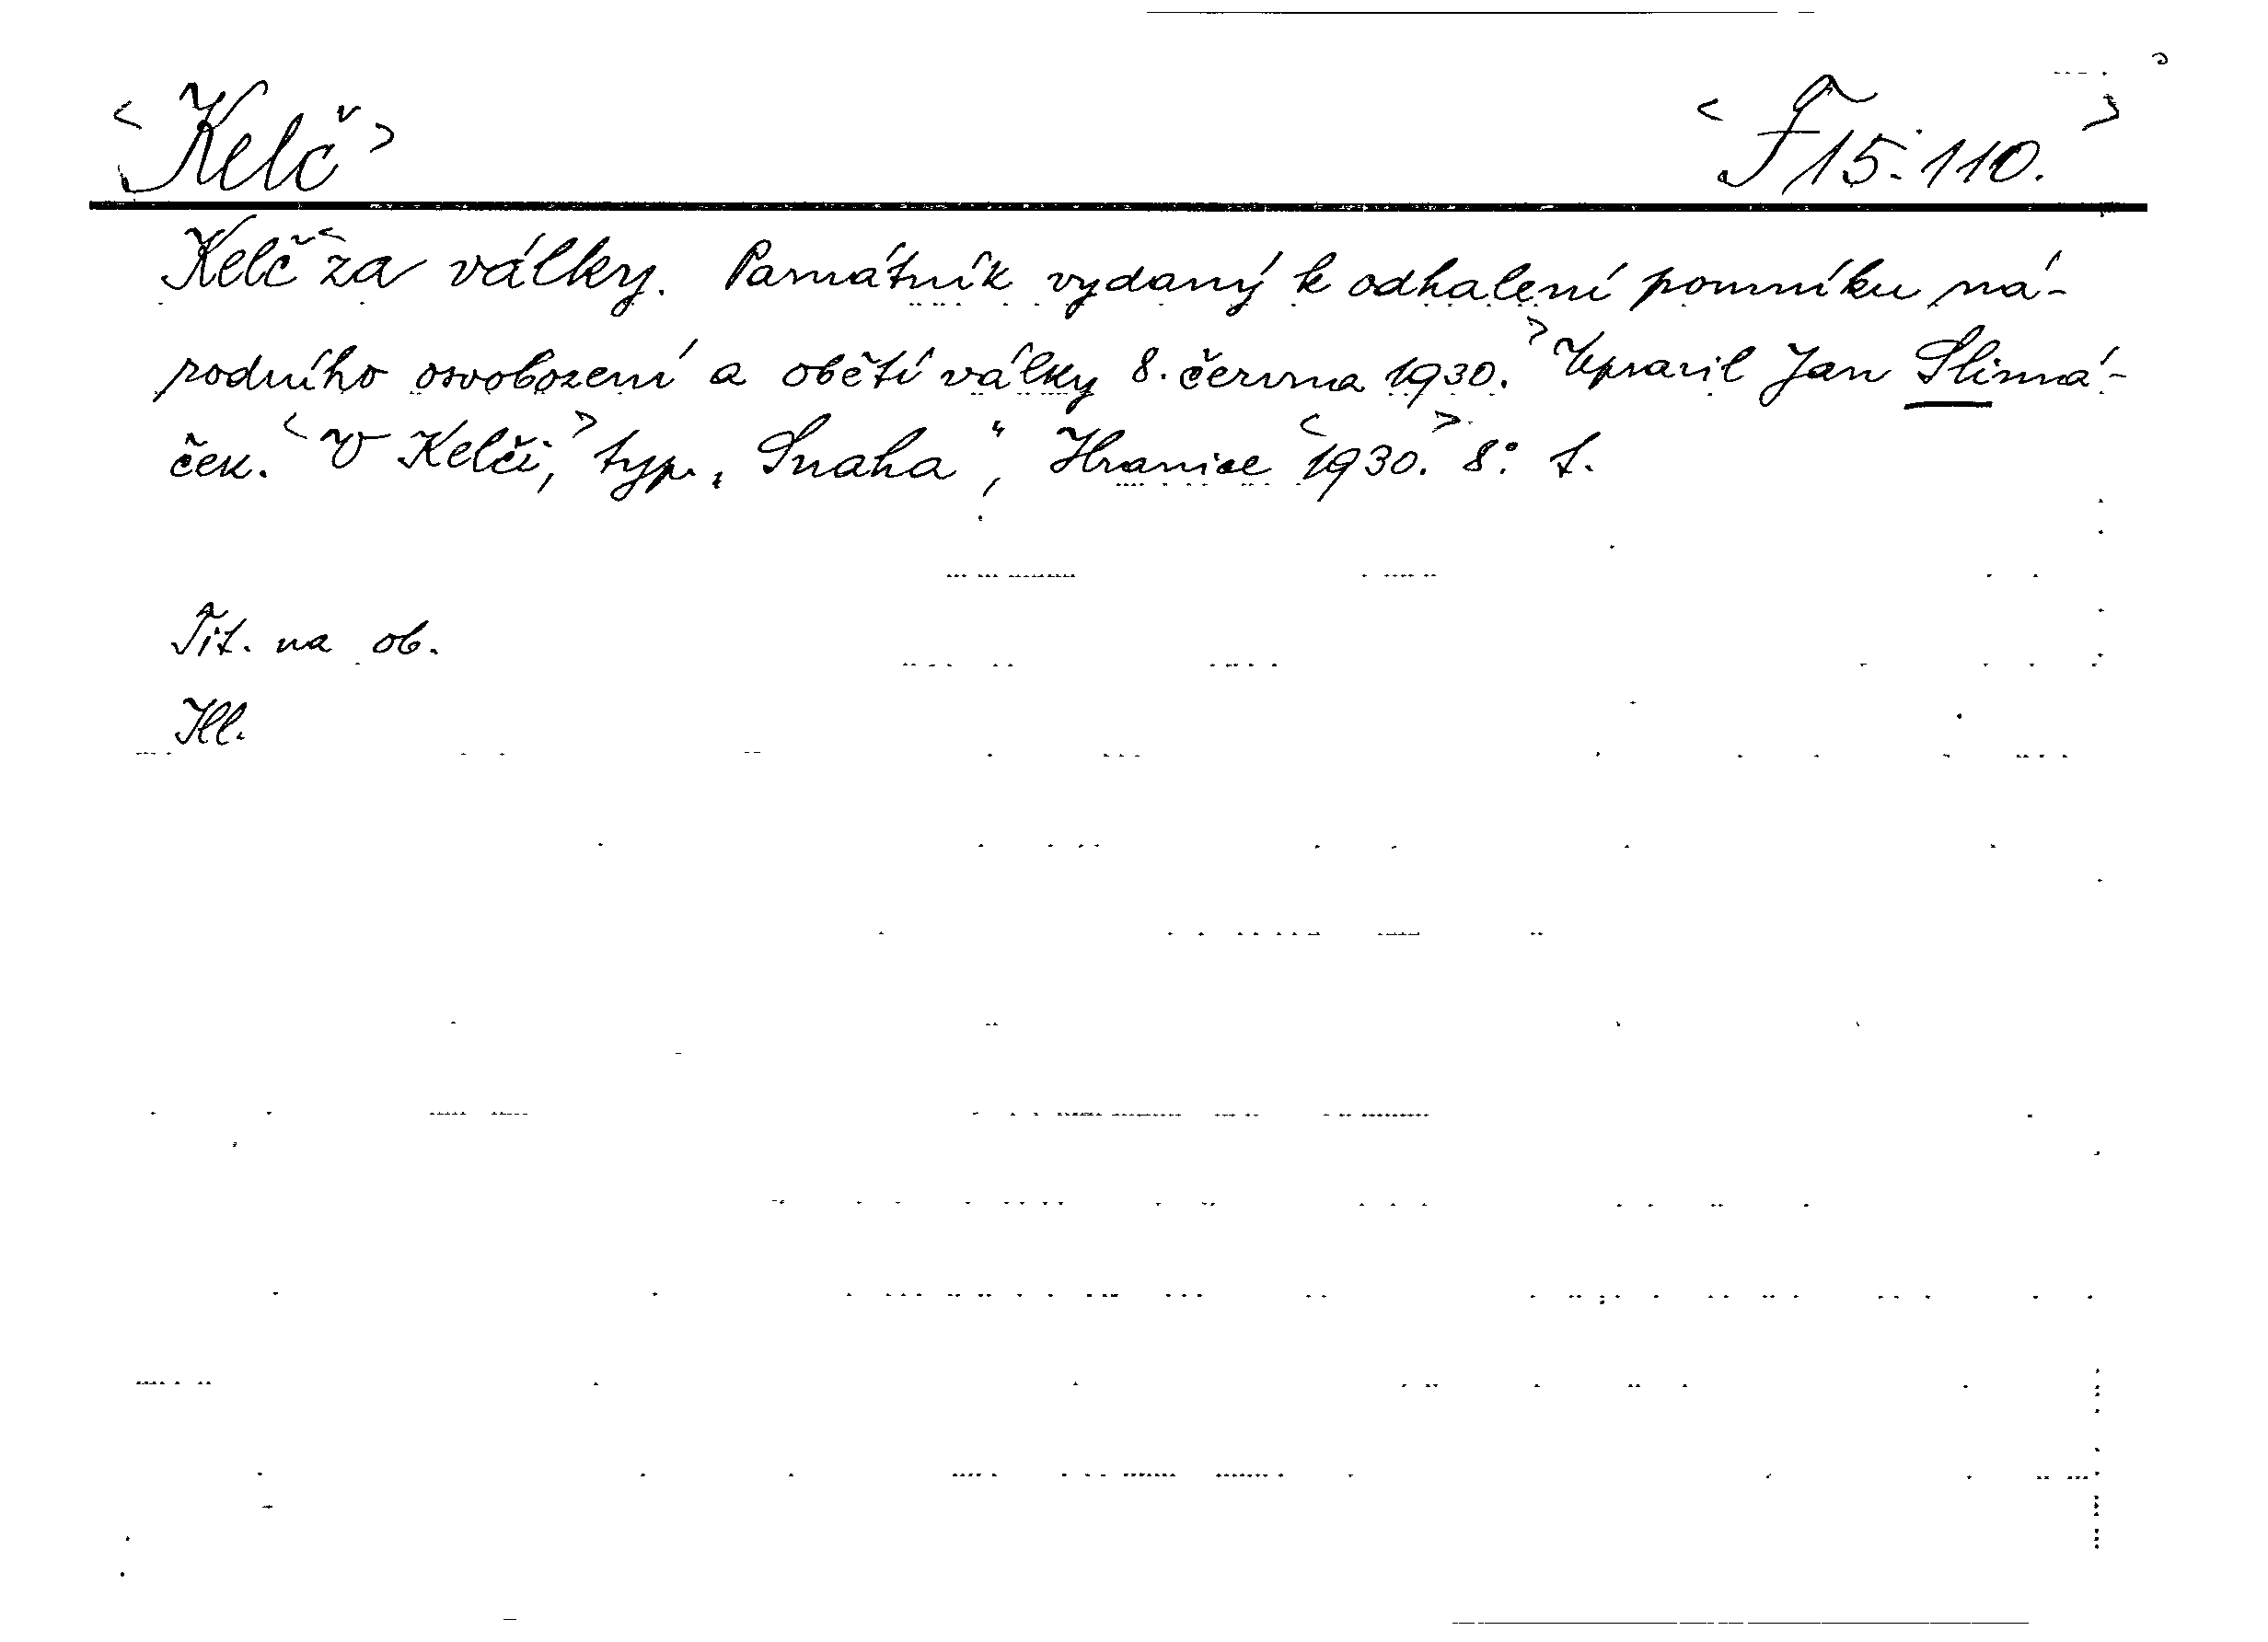 <Kelč> <F 15.110.>
Kelč <za války. Památník vydaný k odhalení pomníku ná-
rodního osvobození a obětí války 8. června 1930.> Upravil Jan Slimá-
ček. <V Kelči,> typ. „Snaha“, Hranice <1930.> 8° f.
Tit. na ob.
Ill.